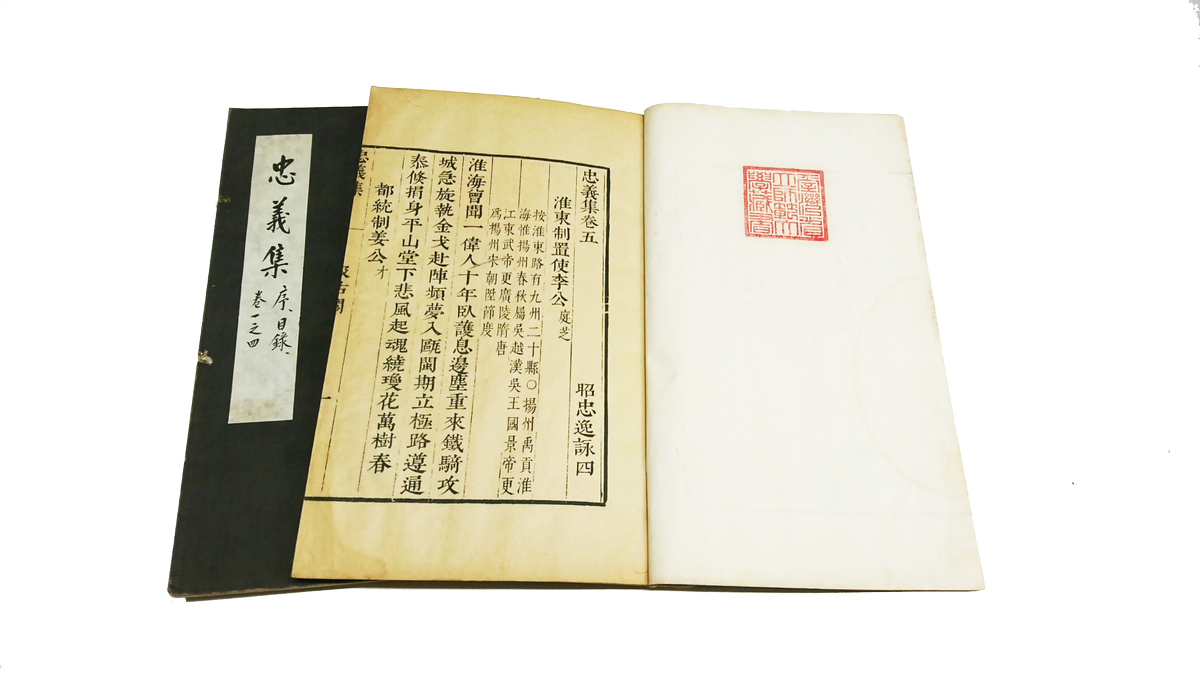 忠義集 序、目錄、
卷一之四
忠義集卷五
昭忠逸詠四
淮東制置使李公庭芝
按淮東路有九州二十縣○揚州禹貢淮
海惟揚州春秋屬吳越漢吳王國景帝更
江東武帝更廣陵隋唐
爲揚州宋朝陞節度
淮海曾聞一偉人十年臥護息邊塵重來鐵騎攻
城急旋執金戈赴陣頻夢入甌閩期立極路遵通
泰倏捐身平山堂下悲風起魂繞瓊花萬樹春
都統制姜公才
忠義集
一
臺灣省立師範大學藏書